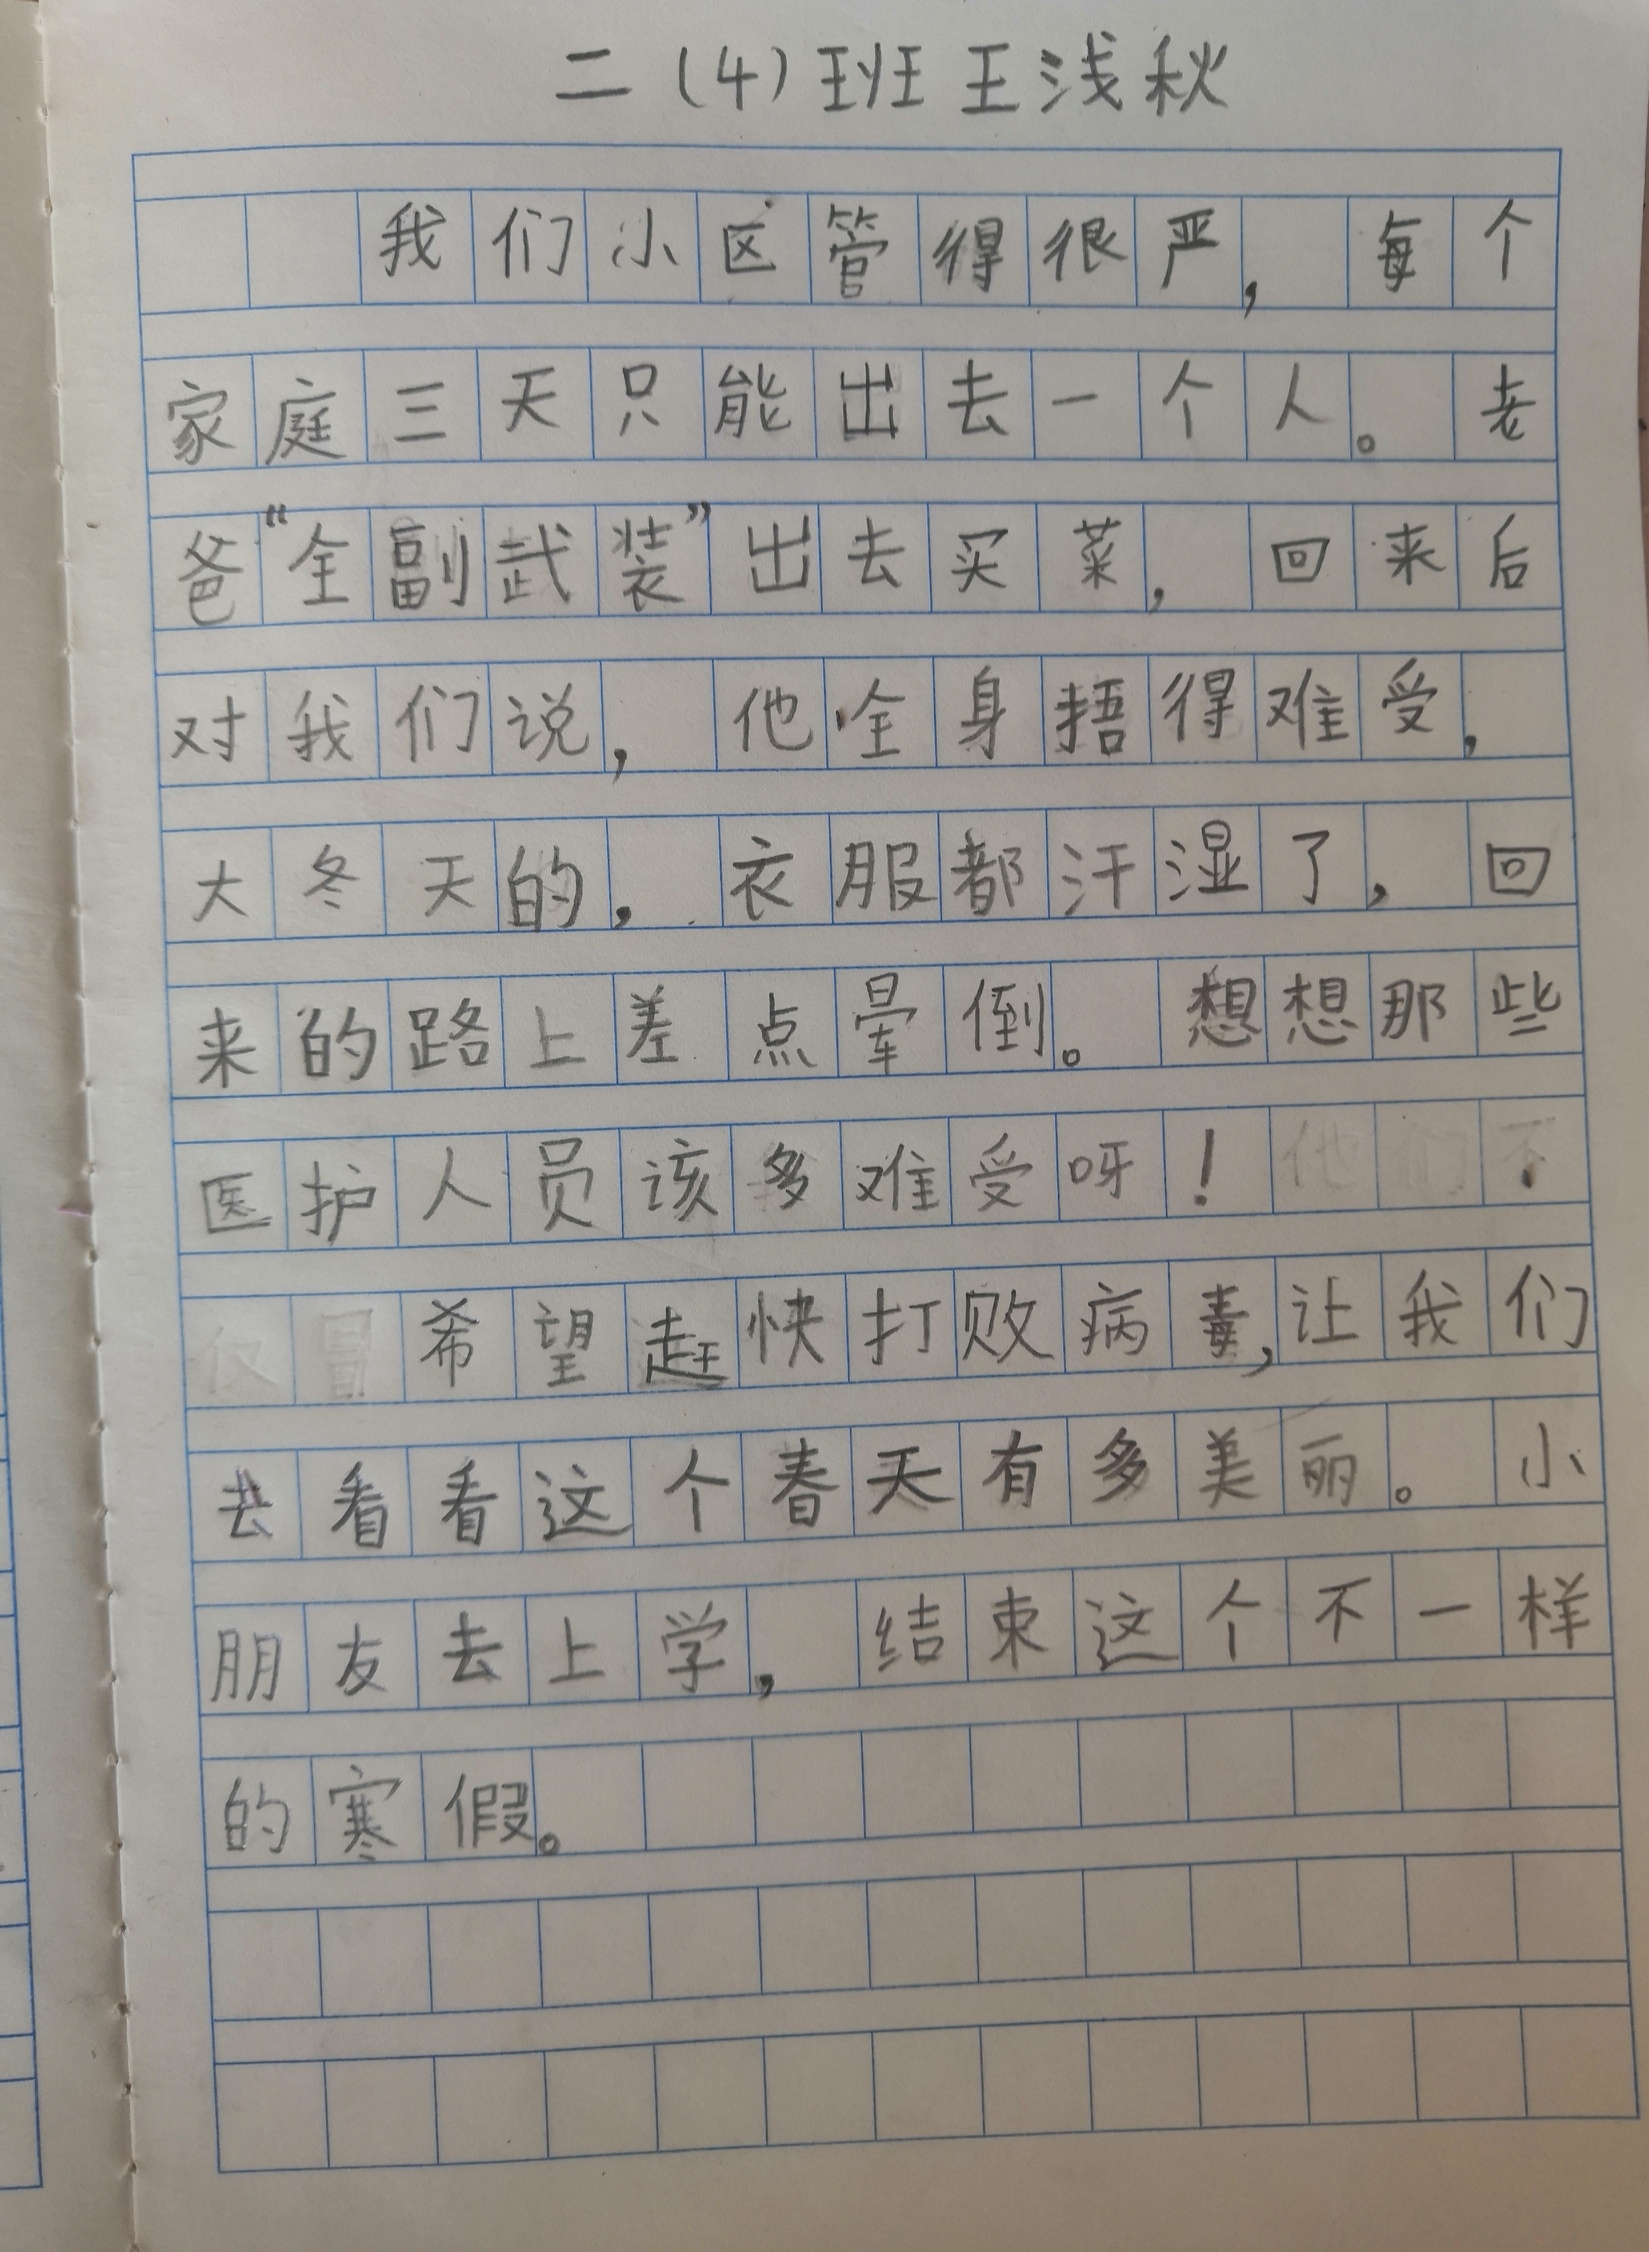 二(4)班王浅秋
我们小区管得很严,每个
家庭三天只能出去一个人。老
爸“全副武装”出去买菜,回来后
对我们说,他全身捂得难受,
大冬天的,衣服都汗湿了,回
来的路上差点晕倒。想想那些
医护人员该多难受呀!
希望赶快打败病毒,让我们
去看看这个春天有多美丽。小
朋友去上学,结束这个不一样
的寒假。